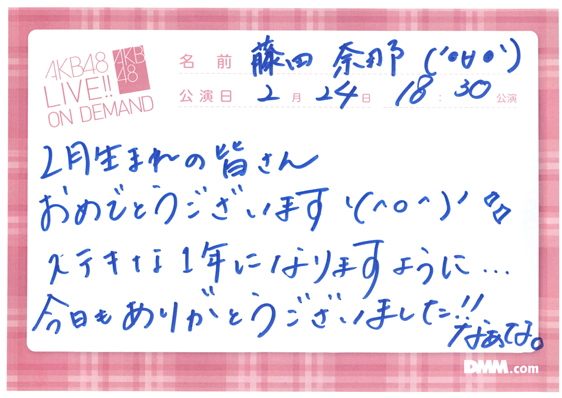 AKB48
LIVE!!
ON DEMAND
AKB
48
名前 藤田 奈那 ('●∀●')
公演日 2月24日 18:30公演
2月生まれの皆さん
おめでとうございます'(^o^)'
ステキな1年になりますように…
今日もありがとうございました!!
なぁな。
DMM.com